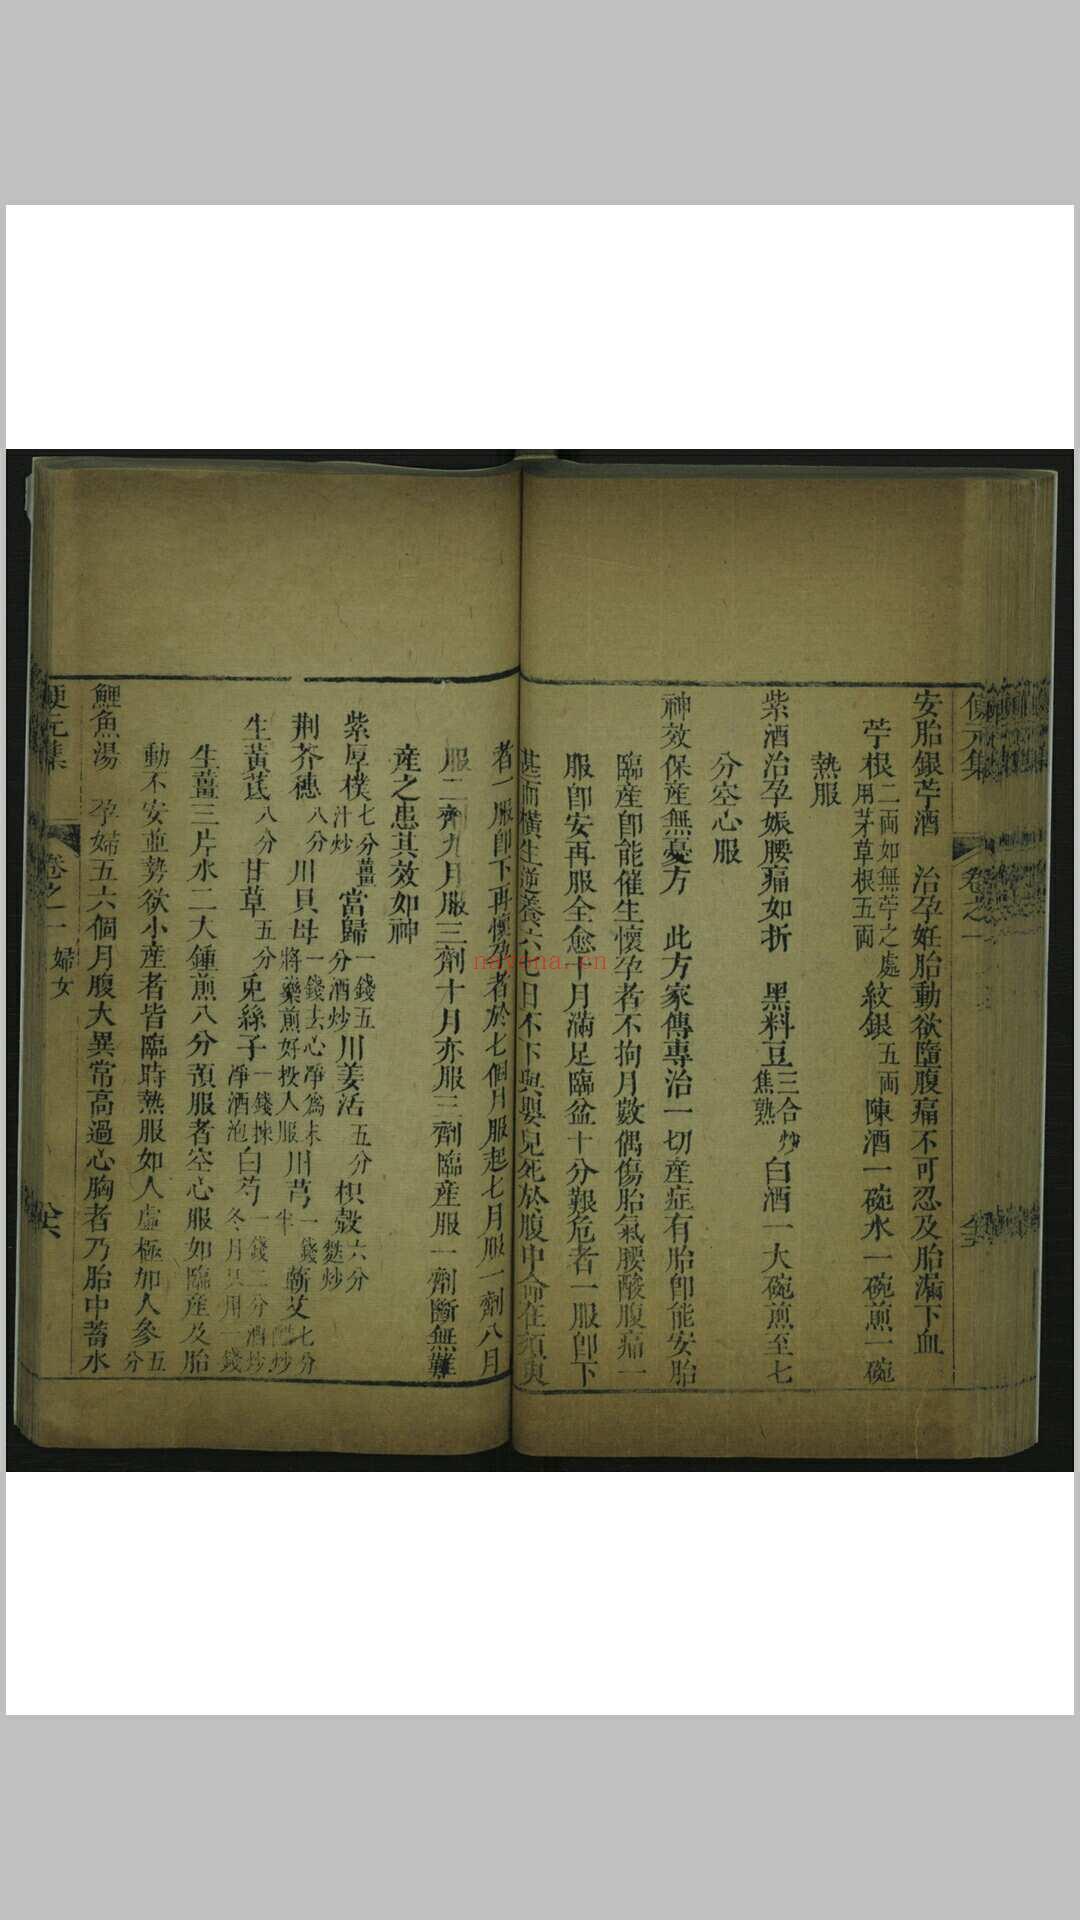 便元集
卷之一
安胎銀苧酒　治孕妊胎動欲墮腹痛不可忍及胎漏下血
苧根二両如無苧之處用茅草根五両紋銀五両陳酒一碗水一碗煎一碗
熱服
紫酒治孕娠腰痛如折　黑料豆三合炒焦熟白酒一大碗煎至七
分空心服
神效保産無憂方　此方家傳專治一切産症有胎卽能安胎
臨産卽能催生懷孕者不拘月數偶傷胎氣腰酸腹痛一
服卽安再服全愈十月滿足臨盆十分艱危者一服卽下
甚而橫生逆養六七日不下與嬰兒死於腹中命在須臾
者一服卽下再懷孕者於七個月服起七月服一劑八月
服二劑九月服三劑十月亦服三劑臨産服一劑斷無難
産之患其效如神
紫厚樸七分薑汁炒當歸一錢五分酒炒川羌活五分枳殼六分麩炒
荆芥穗八分川貝母一錢去心淨為末將藥煎好投入服川芎一錢半蘄艾七分醋炒
生黃芪八分甘草五分兎絲子一錢揀淨酒泡白芍一錢二分酒炒冬月只用一錢
生薑三片水二大鍾煎八分預服者空心服如臨産及胎
動不安並勢欲小産者皆臨時熱服如人虛極加人參五分
鯉魚湯　孕婦五六個月腹大異常高過心胸者乃胎中蓄水
便元集
卷之一
婦女
nayona.cn